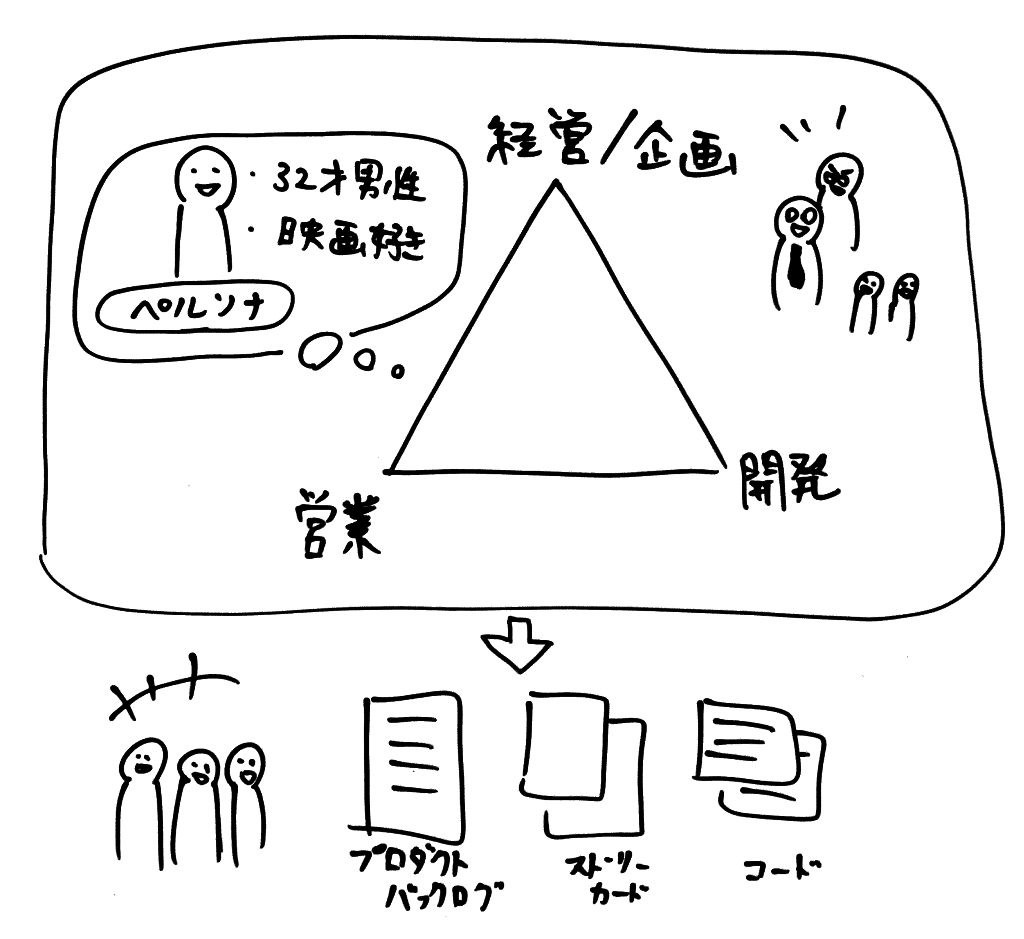 経営/企画
・32才男性
・映画好き
ペルソナ
営業
開発
プロダクト
バックログ
ストーリー
カード
コード